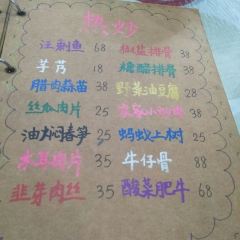 热炒
汪刺鱼 68 椒盐排骨 38
芋艿 18 糖醋排骨 38
腊肉蒜苗 38 野菜油豆腐 28
丝瓜肉片 25 农家小炒肉
油焖春笋 25 蚂蚁上树 25
木耳肉片 35 牛仔骨 88
韭芽肉丝 35 酸菜肥牛 68